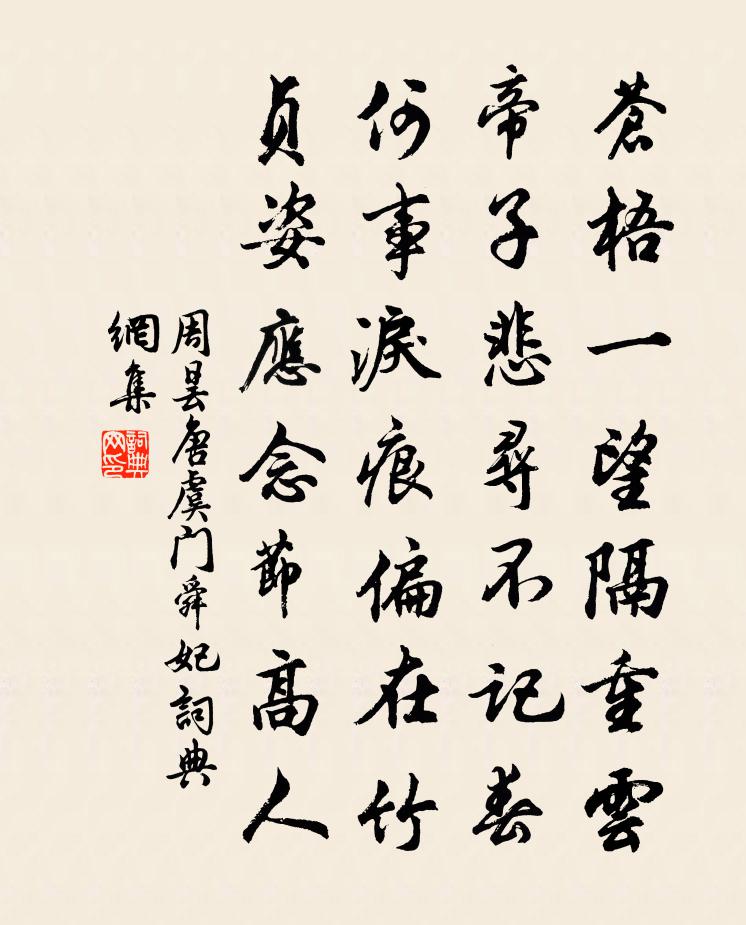 蒼梧一望隔重雲
帝子悲尋不記春
何事淚痕偏在竹
貞姿應念節高人
周曇唐虞门舜妃詞典
網集
詞典
网印